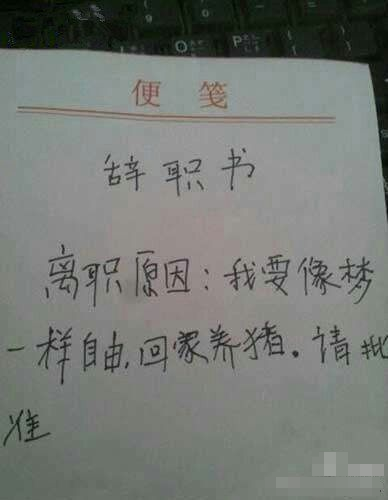 O P
便笺
辞职书
离职原因：我要像梦
一样自由，回家养猪。请批
准